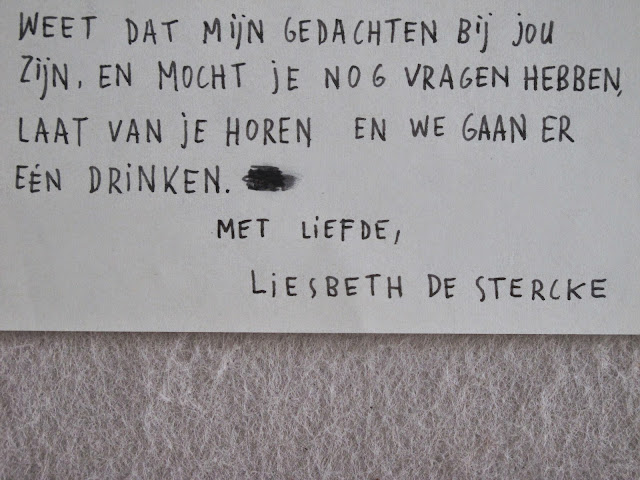 WEET DAT MijN GEDACHTEN Bij jou
Zijn, EN MOCHT je NOG VRAGEN HEBBEN,
LAAT VAN je HOREN EN WE GAAN ER
EÉN DRiNKEN.
MET LiEFDE,
LiESBETH DE STERCKE